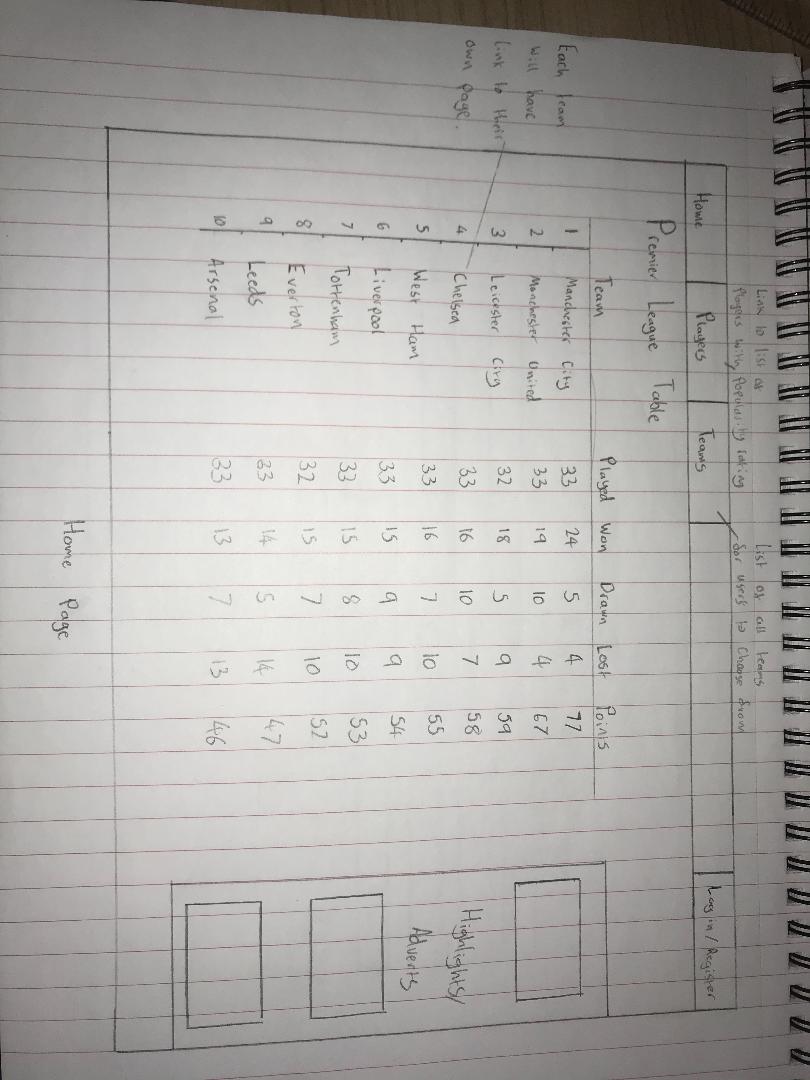 Link to list of
Players with Popularity rating
List of all teams
for users to choose from
Home Players Teams Log in / Register
Premier League Table
Team Played Won Drawn Lost Points
1 Manchester City 33 24 5 4 77
2 Manchester United 33 19 10 4 67
3 Leicester City 32 18 5 9 59
4 Chelsea 33 16 10 7 58
5 West Ham 33 16 7 10 55
6 Liverpool 33 15 9 9 54
7 Tottenham 33 15 8 10 53
8 Everton 32 15 7 10 52
9 Leeds 33 14 5 14 47
10 Arsenal 33 13 7 13 46
Each team
will have
link to their
own page.
Highlights/
Adverts
Home Page